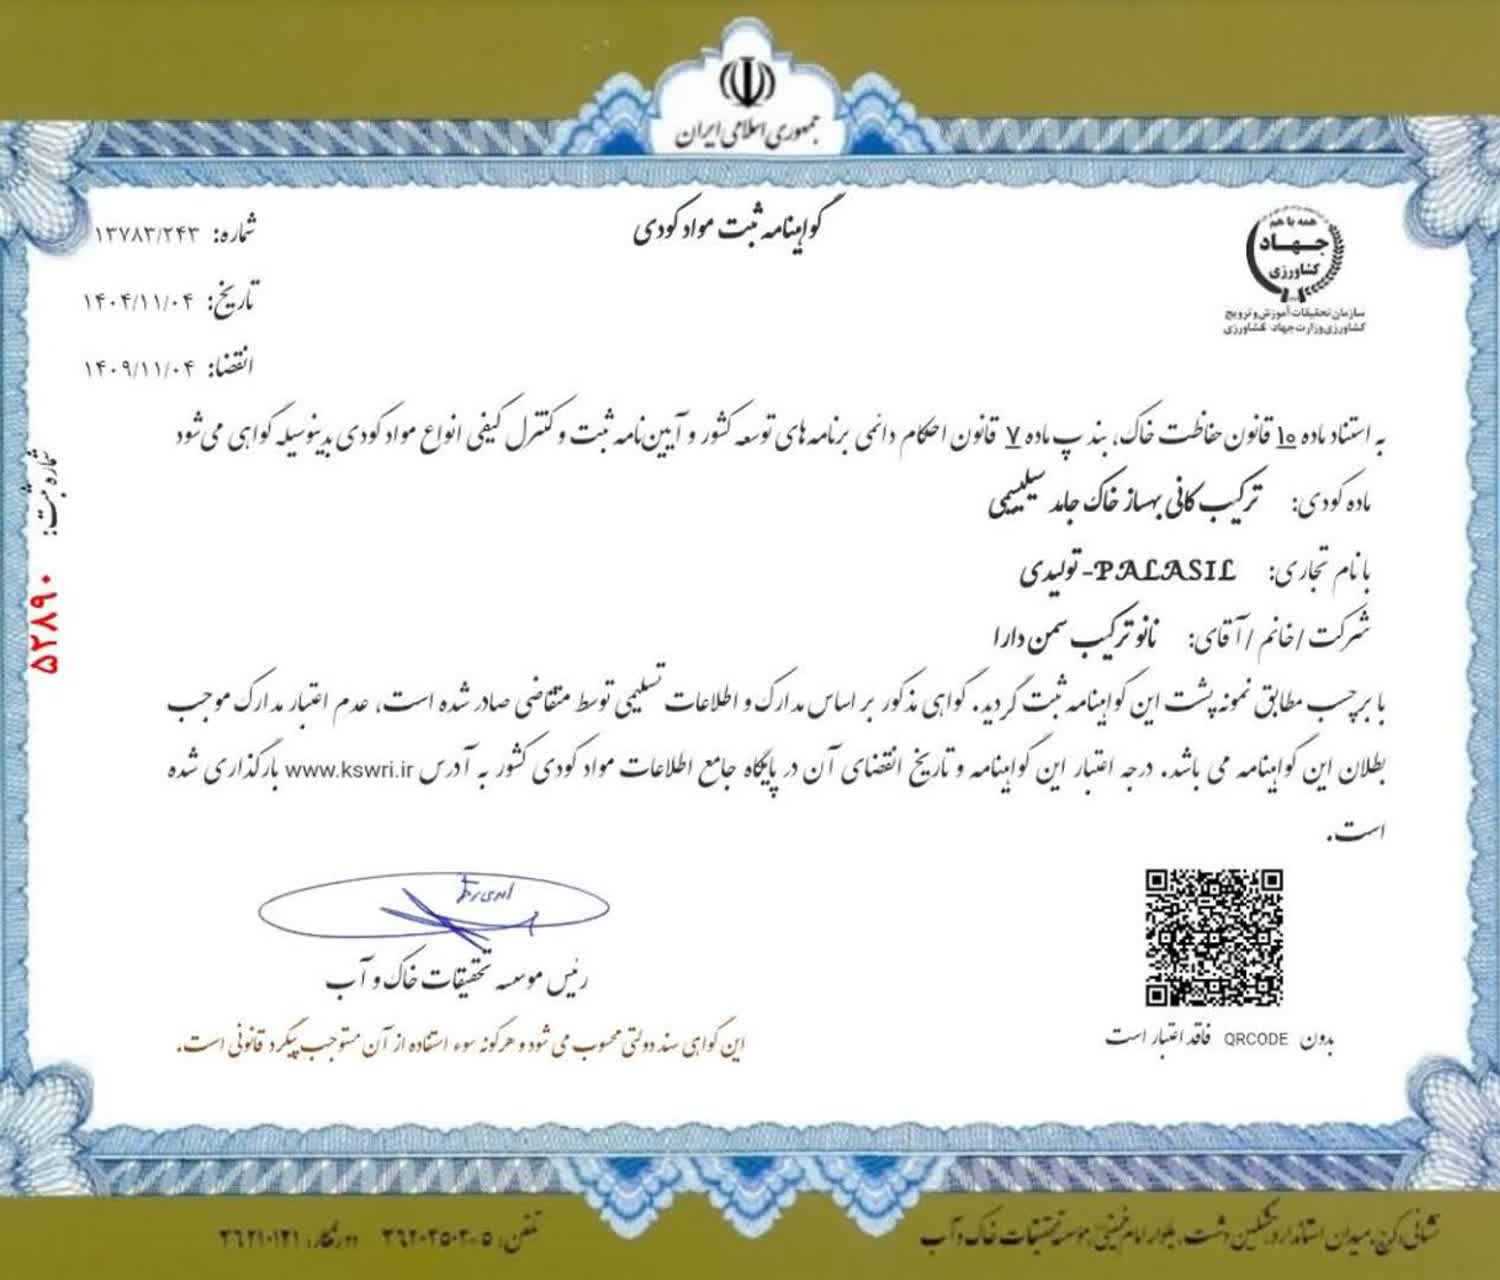 جمهوری اسلامی ایران
همه با هم
جهاد
کشاورزی
سازمان تحقیقات، آموزش و ترویج
کشاورزی وزارت جهاد کشاورزی
گواهینامه ثبت مواد کودی
شماره: ۱۳۷۸۳/۲۴۳
تاریخ: ۱۴۰۴/۱۱/۰۴
انقضا: ۱۴۰۹/۱۱/۰۴
به استناد ماده ۱۰ قانون حفاظت خاک، بند پ ماده ۷ قانون احکام دائمی برنامه های توسعه کشور و آیین نامه ثبت و کنترل کیفی انواع مواد کودی بدینوسیله گواهی می شود
ماده کودی: ترکیب کانی بهساز خاک جامد سیلیسیمی
با نام تجاری: PALASIL- تولیدی
شرکت / خانم / آقای: نانو ترکیب سمن دارا
با برچسب مطابق نمونه پشت این گواهینامه ثبت گردید. گواهی مذکور بر اساس مدارک و اطلاعات تسلیمی توسط متقاضی صادر شده است، عدم اعتبار مدارک موجب
بطلان این گواهینامه می باشد. درجه اعتبار این گواهینامه و تاریخ انقضای آن در پایگاه جامع اطلاعات مواد کودی کشور به آدرس www.kswri.ir بارگذاری شده
است.
شماره ثبت: ۵۲۸۹۰
رئیس موسسه تحقیقات خاک و آب
بدون QRCODE فاقد اعتبار است
این گواهی سند دولتی محسوب می شود و هرگونه سوء استفاده از آن مستوجب پیگرد قانونی است.
نشانی: کرج، میدان استاندارد، مشکین دشت، بلوار امام خمینی، موسسه تحقیقات خاک و آب
تلفن: ۵-۳۶۲۰۳۵۰۲ دورنگار: ۳۶۲۱۰۱۲۱